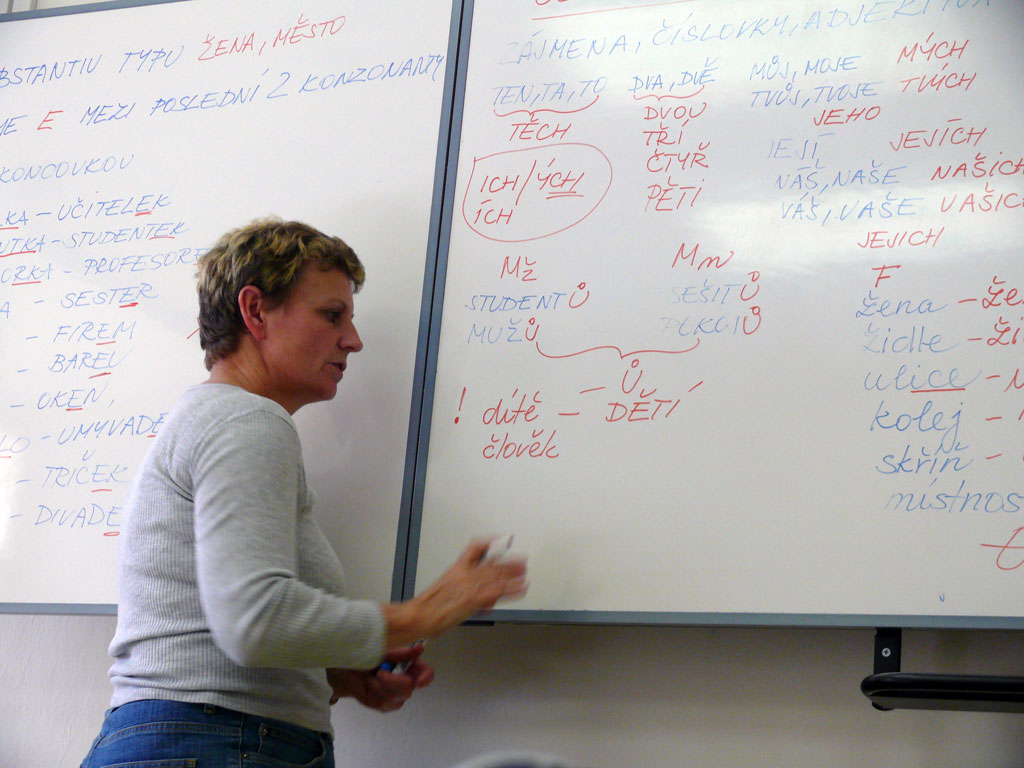 SUBSTANTIV TYPU ŽENA, MĚSTO
E MEZI POSLEDNÍ 2 KONZONANTY
KONCOVKOU
LKA - UČITELEK
NTKA - STUDENTEK
ORKA - PROFESORE
A - SESTER
- FIREM
- BAREV
- OKEN,
LO - UMYVADE
- TRIČEK
- DIVADE
ZÁJMENA, ČÍSLOVKY, ADJEKTIVA
TEN, TA, TO
TĚCH
ICH/ÝCH
ÍCH
DVA, DVĚ
DVOU
TŘÍ
ČTYŘ
PĚTI
MŮJ, MOJE MÝCH
TVŮJ, TVOJE TVÝCH
JEHO
JEJÍ JEJÍCH
NÁŠ, NAŠE NAŠICH
VÁŠ, VAŠE VAŠIC
JEJICH
Mž
STUDENTŮ
MUŽŮ
Mn
SEŠITŮ
POKOJŮ
Ů
! dítě - DĚTÍ
člověk
F
žena - že
židle - ži
ulice -
kolej -
skříň -
místnos